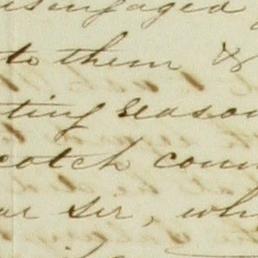 disengaged
to them &
ting season
cotch coun
ar sir, whi